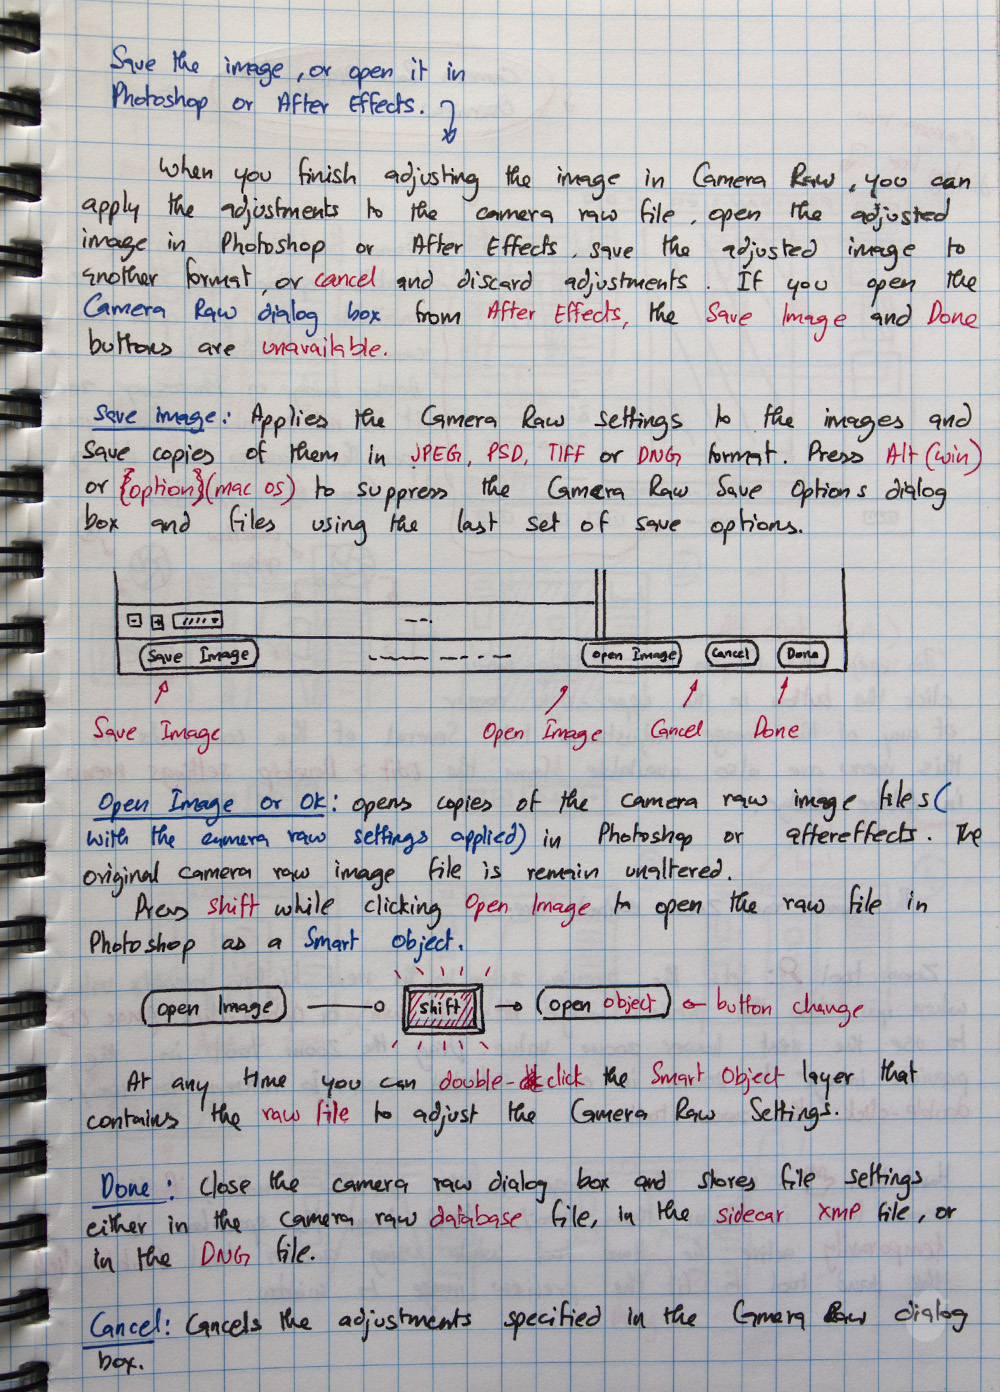 Save the image, or open it in
Photoshop or After Effects.
When you finish adjusting the image in Camera Raw, you can
apply the adjustments to the camera raw file, open the adjusted
image in Photoshop or After Effects, save the adjusted image to
another format, or cancel and discard adjustments. If you open the
Camera Raw dialog box from After Effects, the Save Image and Done
buttons are unavailable.
Save image: Applies the Camera Raw settings to the images and
Save copies of them in JPEG, PSD, TIFF or DNG format. Press Alt (win)
or {option} (mac os) to suppress the Camera Raw Save Options dialog
box and files using the last set of save options.
Save Image Open Image Cancel Done
Save Image Open Image Cancel Done
Open Image or Ok: opens copies of the camera raw image files (
with the camera raw settings applied) in Photoshop or aftereffects. The
original camera raw image file is remain unaltered.
Press shift while clicking Open Image to open the raw file in
Photoshop as a Smart Object.
open Image shift open object button change
At any time you can double-click the Smart Object layer that
contains the raw file to adjust the Camera Raw Settings.
Done: Close the camera raw dialog box and stores file settings
either in the camera raw database file, in the sidecar XMP file, or
in the DNG file.
Cancel: Cancels the adjustments specified in the Camera Raw dialog
box.